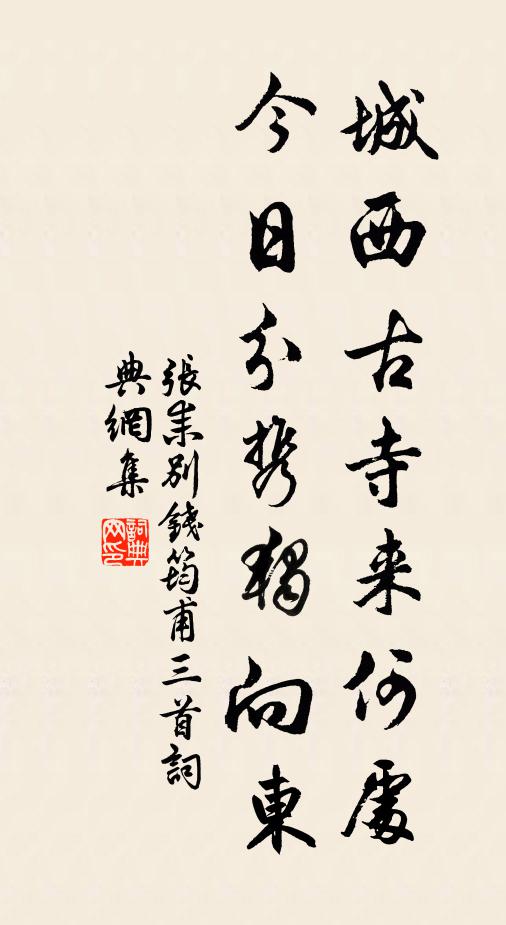 城西古寺来何處
今日分携獨向東
張耒別錢筠甫三首詞
典網集
詞典
网印